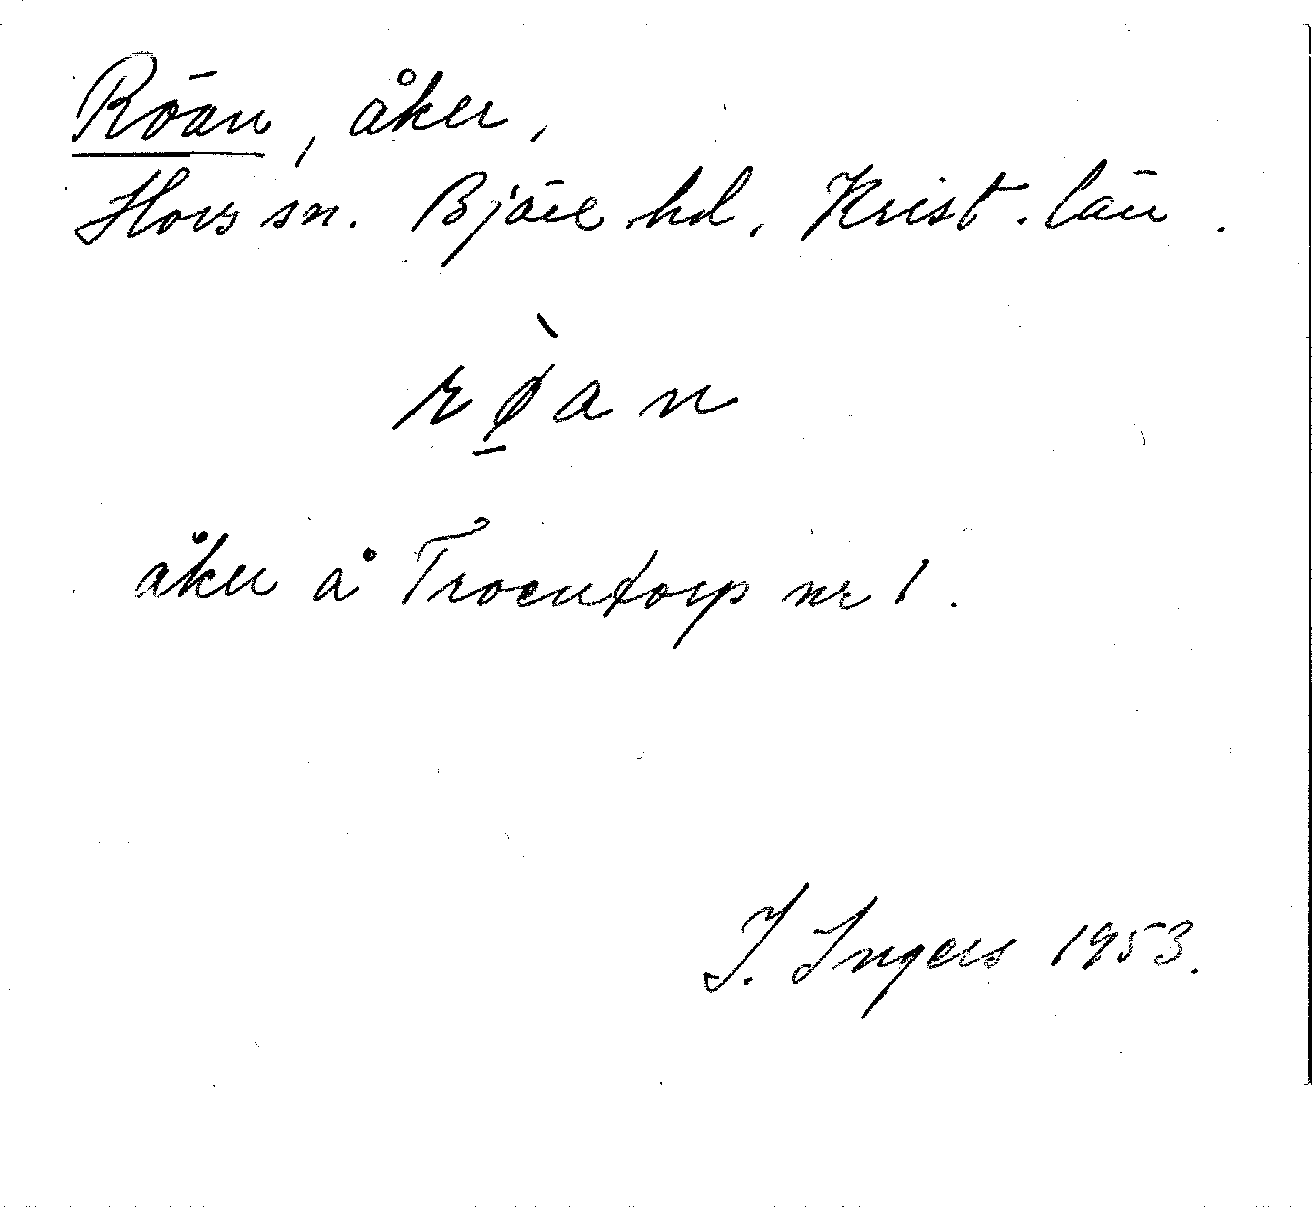 Röan, åker,
Hovs sn. Bjäre hd. Krist. län.
rø̠̀an
åker å Troentorp nr 1.
I. Ingers 1953.